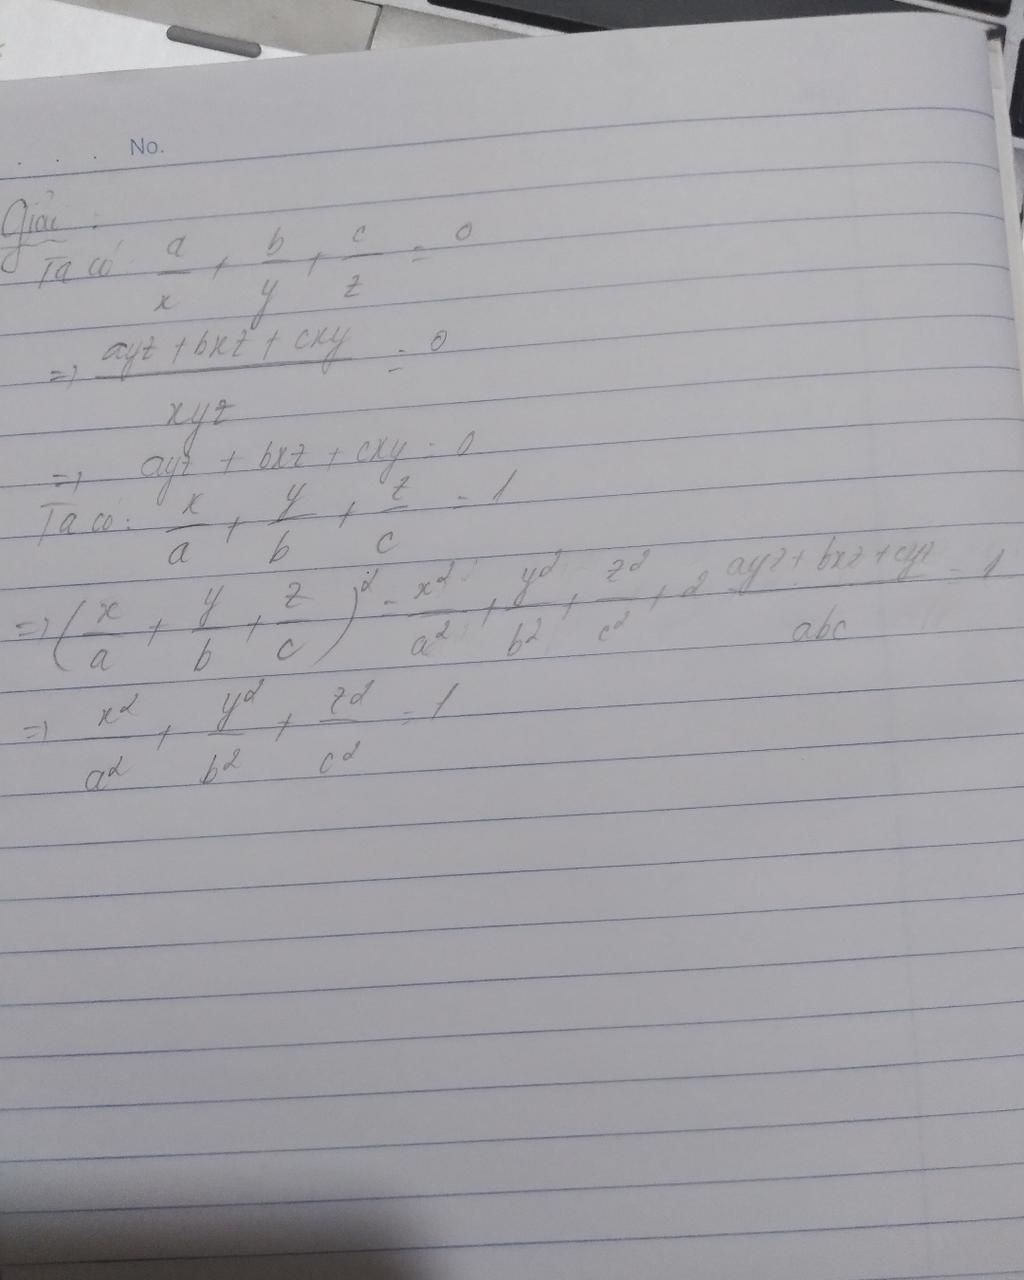 No.
Giải:
Ta có: a/x + b/y + c/z = 0
=> (ayz + bxz + cxy)/xyz = 0
=> ayz + bxz + cxy = 0
Ta có: x/a + y/b + z/c = 1
=> (x/a + y/b + z/c)² = x²/a² + y²/b² + z²/c² + 2 (ayz + bxz + cyz)/abc = 1
=> x²/a² + y²/b² + z²/c² = 1